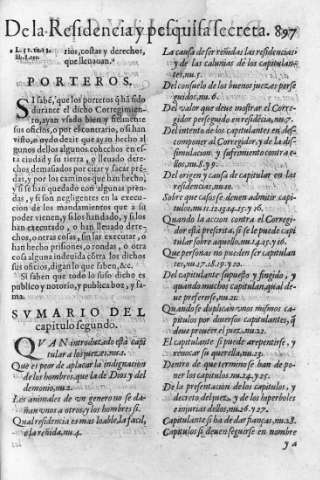 De la Residencia y pesquisa secreta. 897
rios, costas y derechos,
que lleuauan.
PORTEROS.
SI sabẽ, que los porteros q̃ hã sido
durante el dicho Corregimiẽ-
to, ayan vsado bien y fielmente
sus oficios, o por el contrario, o si han
visto, o oydo dezir que ayan hecho al
gunos dellos algunos cohechos en es-
ta ciudad y su tierra, o lleuado dere-
chos demasiados por citar y sacar prẽ-
das, y por los caminos que han hecho,
y si se han quedado con algunas pren-
das, y si son negligentes en la execu-
cion de los mandamientos que a su
poder vienen, y si los han dado, y si los
han executado, o han lleuado dere-
chos, o otras cosas, sin las executar, o
han hecho prisiones, o rondas, o otra
cosa alguna indeuida cõtra los dichos
sus oficios, digan lo que saben, &c.
Si saben que todo lo suso dicho es
publico y notorio, y publica boz, y fa-
ma.
SVMARIO DEL
capitulo segundo.
QVAN introduzido està capi
tular a los juezes. nu. 1.
Que es peor de aplacar la indignacion
de los hombres, que la de Dios y del
demonio, nu. 2.
Los animales de vn genero no se da-
ñan vnos a otros, y los hombres si.
Qual residencia es mas loable, la facil,
o la reñida, nu. 4.
La causa de ser reñidas las residencias
y de las calunias de los capitulan-
tes, nu. 5.
Del consuelo de los buenos juezes perse
guidos, nu. 6.
Del valor que deue mostrar el Corre-
gidor perseguido en residẽcia, nu. 7.
Del intento de los capitulantes en des-
componer al Corregidor, y de la dis-
simulacion y sufrimiento contra e-
llos, nu. 8. y 9.
Del origen y causa de capitular en las
residencias, nu. 10.
Sobre que casos se deuen admitir capi-
tulos, nu. 11. 12. 13. 14. 15. y 16.
Quando la accion contra el Corregi-
dor està prescrita, si se le puede capi
tular sobre aquello, nu. 14. 15. y 16.
Que personas no pueden ser capitulan
tes, nu. 17. 18. 19. y 20.
Del capitulante supuesto y fingido, y
quando muchos capitulan, qual de-
ue preferirse, nu. 21.
Quando se duplican vnos mismos ca-
pitulos por diuersos capitulantes, q̃
deue proueer el juez, nu. 22.
El capitulante si puede arrepẽtirse, y
reuocar su querella, nu. 23.
Dentro de que termino se han de po-
ner los capitulos, nu. 24. y 25.
De la presentacion de los capitulos, y
decreto del juez, y de los hiperboles
e injurias dellos, nu. 26. y 27.
Capitulante si ha de dar fianças, nu. 28.
Capitulos si deuen seguirse en nombre